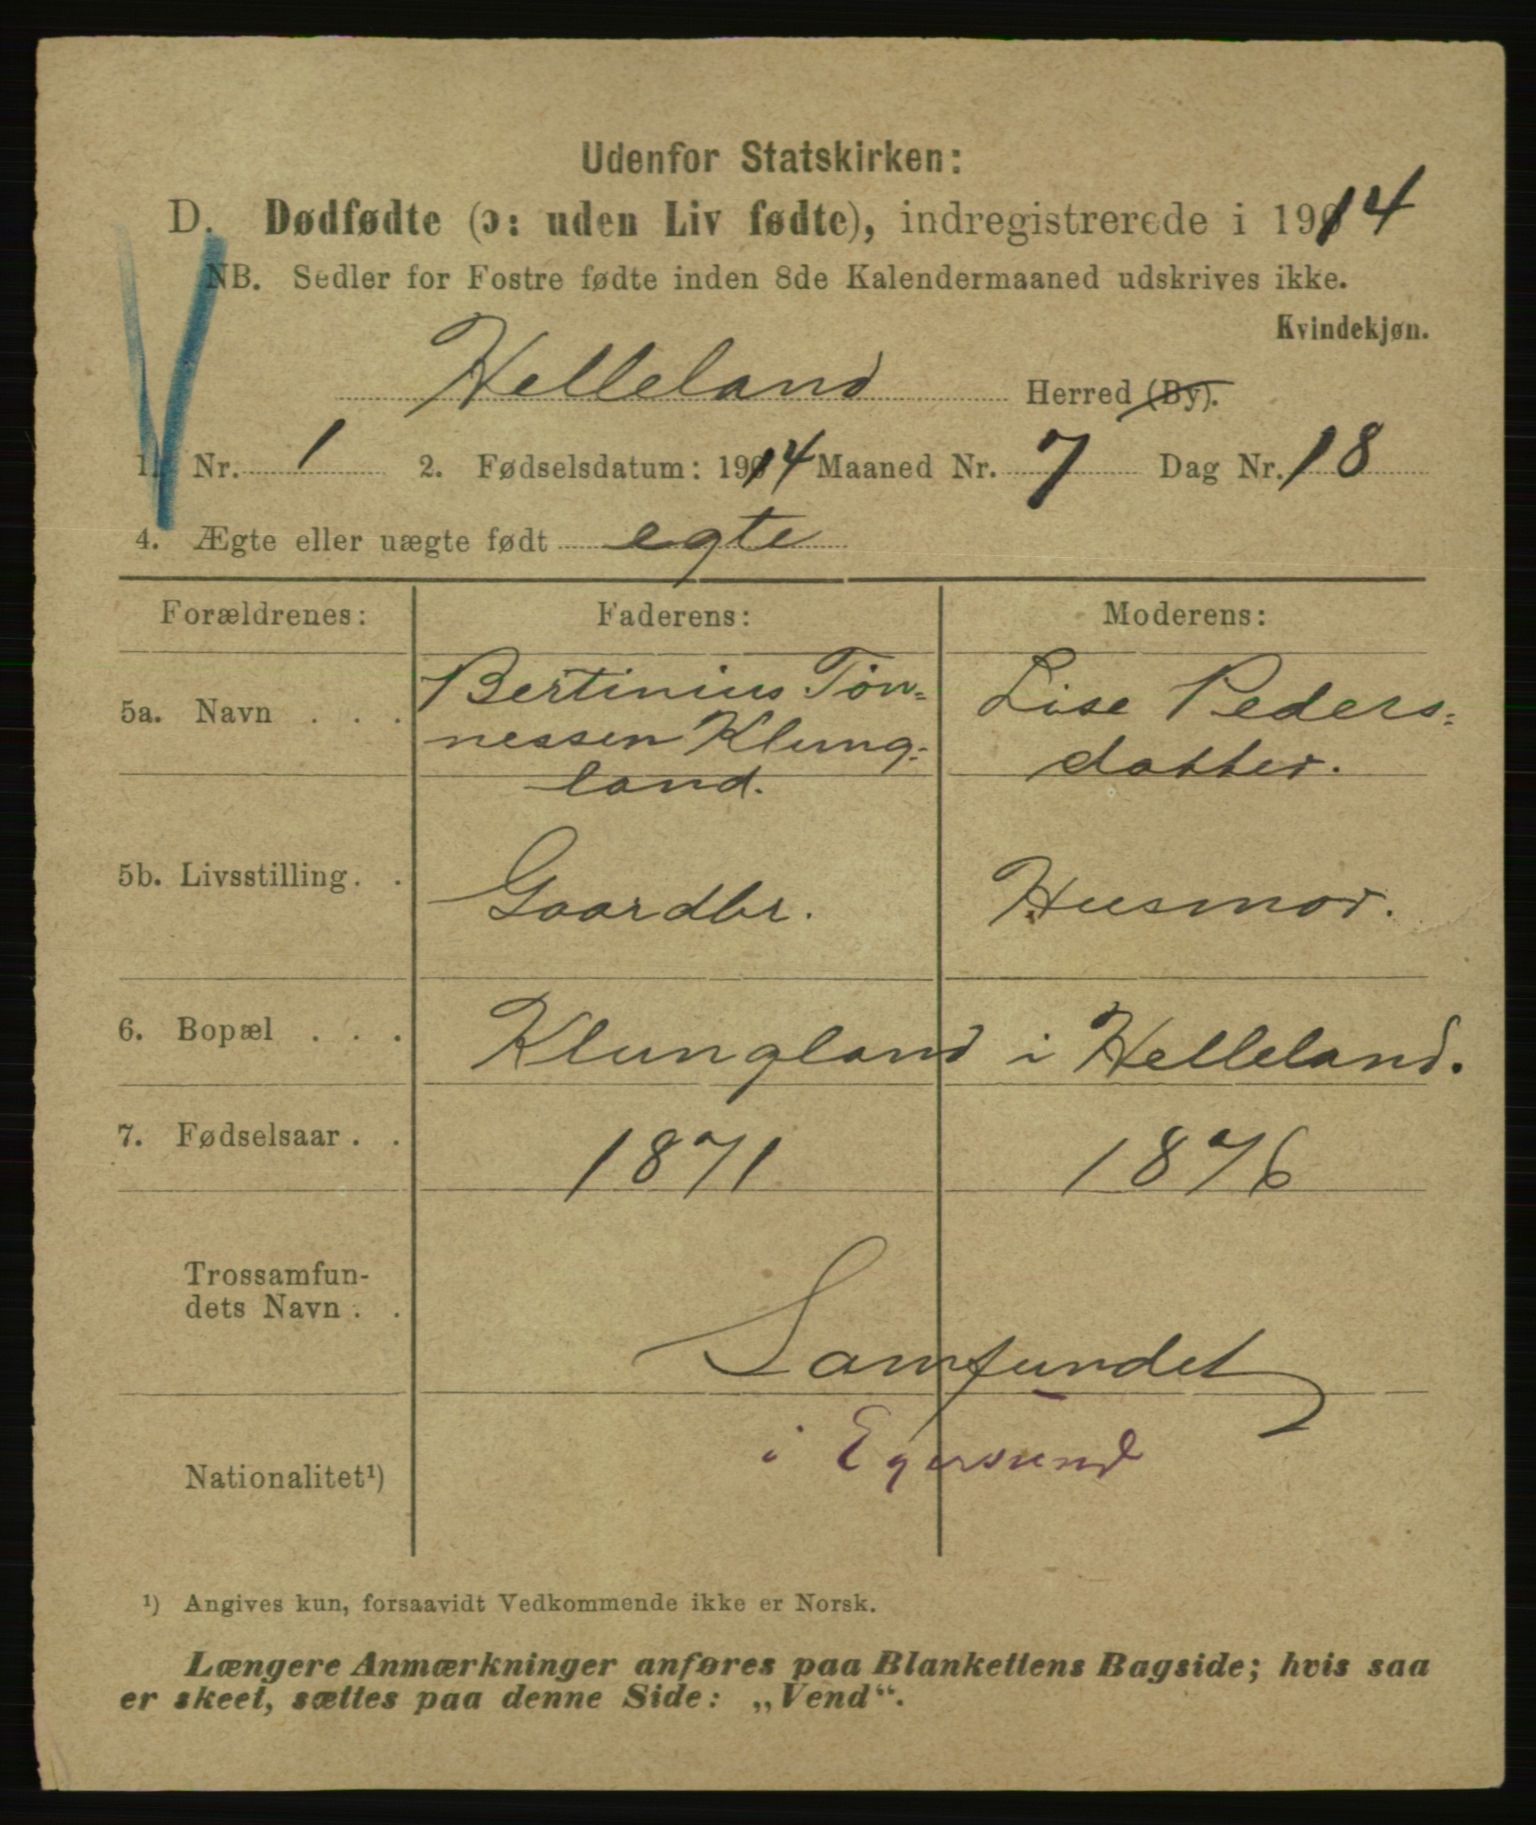 Udenfor Statskirken:
D. Dødfødte (ɔ: uden Liv fødte), indregistrerede i 1914
NB. Sedler for Fostre fødte inden 8de Kalendermaaned udskrives ikke.
Kvindekjøn.
Helleland Herred (By).
1. Nr. 1 2. Fødselsdatum: 1914 Maaned Nr. 7 Dag Nr. 18
4. Ægte eller uægte født egte
Forældrenes: Faderens: Moderens:
5a. Navn . . . Bertinius Tøn= Lise Peders=
nessen Klung= datter.
land.
5b. Livsstilling . . Gaardbr. Husmor.
6. Bopæl . . . Klungland i Helleland.
7. Fødselsaar . . 1871 1876
Trossamfun-
dets Navn . . Samfundet
i Egersund
Nationalitet¹)
¹) Angives kun, forsaavidt Vedkommende ikke er Norsk.
Længere Anmærkninger anføres paa Blankettens Bagside; hvis saa
er skeet, sættes paa denne Side: „Vend“.